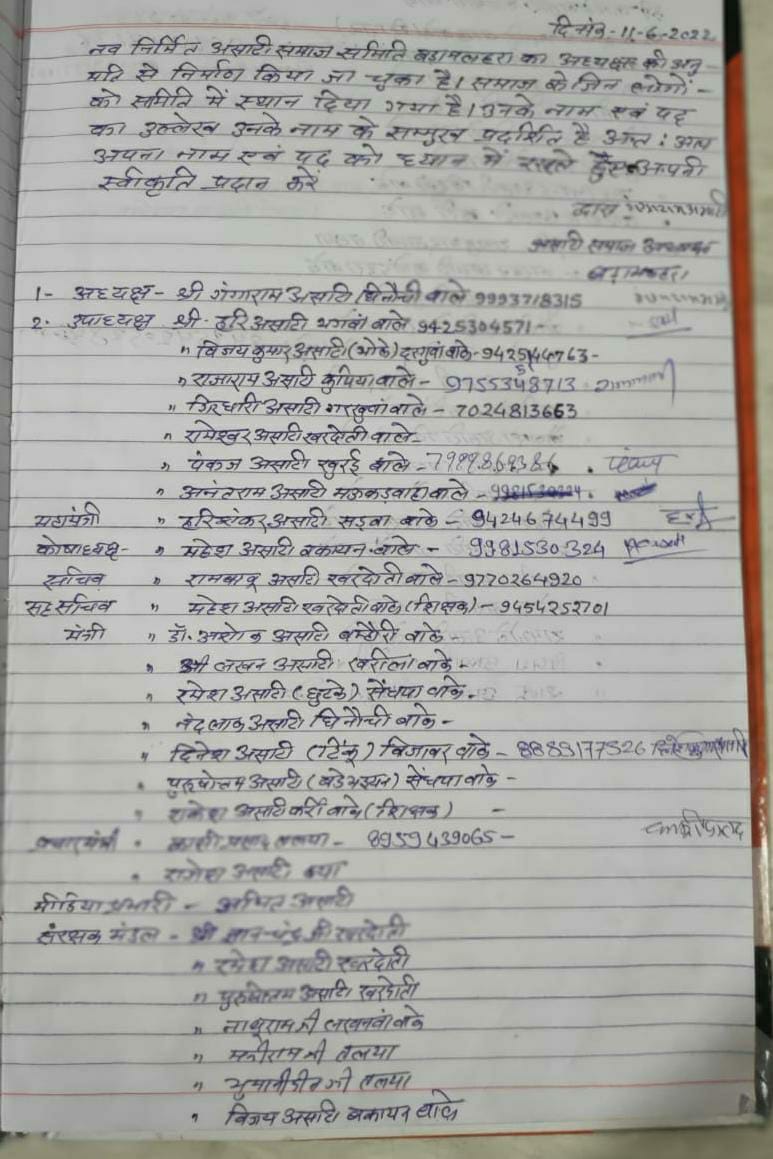 दिनांक-11-6-2022
नव निर्मित असाटी समाज समिति बड़ामलहरा का अध्यक्ष की अनु-
मति से निर्माण किया जा चुका है। समाज के जिन लोगों-
को समिति में स्थान दिया गया है। उनके नाम एवं पद
का उल्लेख उनके नाम के सम्मुख प्रदर्शित है अतः आप
अपना नाम एवं पद को ध्यान में रखते हुए आपनी
स्वीकृति प्रदान करें
द्वारा
असाटी समाज अध्यक्ष
बड़ामलहरा
1- अध्यक्ष- श्री गंगाराम असाटी घिनौची वाले 9993718315
2- उपाध्यक्ष श्री हरि असाटी भगवां वाले 9425304571-
" विजय कुमार असाटी (भोले) दरगुवां वाले-9425144763-
" राजाराम असाटी कुपिया वाले- 9755348713
" गिरधारी असाटी वाले- 7024813663
" रामेश्वर असाटी खरदोती वाले-
" पंकज असाटी खुरई वाले-
" अनंतराम असाटी वाले-
महामंत्री " हरिशंकर असाटी सड़वा वाले- 9424674499
कोषाध्यक्ष- " महेश असाटी बकायन वाले- 9981530324
सचिव " रामबाबू असाटी खरदोती वाले-9770264920
सह सचिव " महेश असाटी खरदोती वाले (शिक्षक)- 9454252701
मंत्री " डॉ. अशोक असाटी बम्हौरी वाले-
" श्री लखन असाटी खरीला वाले-
" रमेश असाटी (छुटके) सेंधपा वाले-
" नंदलाल असाटी घिनौची वाले-
" दिनेश असाटी (टिंकू) बिजावर वाले- 8853177526
" पुरुषोत्तम असाटी (बडे भइयन) सेंधपा वाले-
" राकेश असाटी कर्री वाले (शिक्षक) -
प्रचारमंत्री " काशी प्रसाद तलया- 8959439065-
" राकेश असाटी
मीडिया प्रभारी - अमित असाटी
संरक्षक मंडल - श्री जी खरदोती
" रमेश असाटी खरदोती
" पुरुषोत्तम असाटी खरदोती
" नाथूराम जी लखनवां वाले
" मनीराम जी तलया
" भुमानीदीन जी तलया
" विजय असाटी बकायन वाले